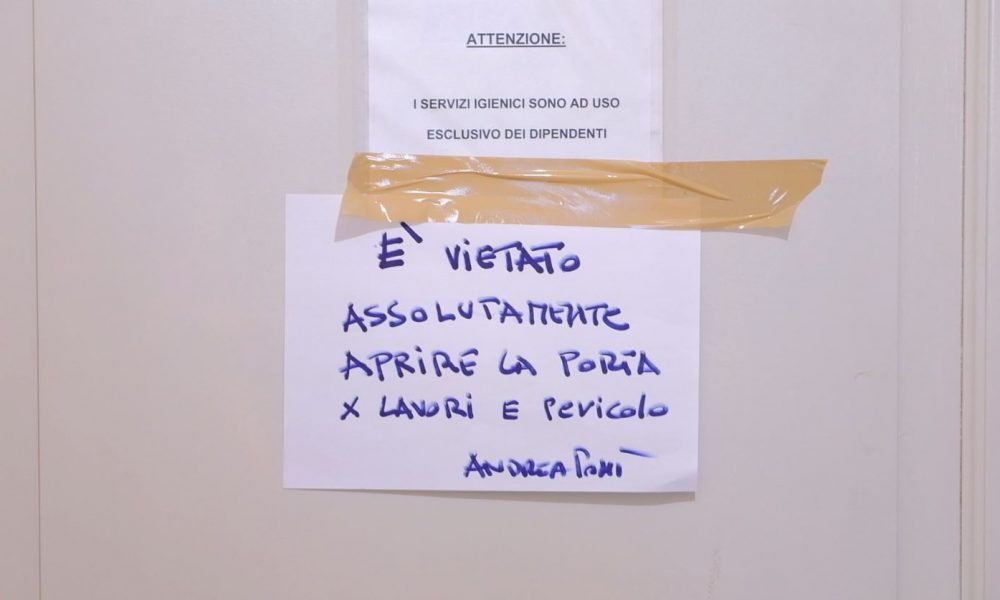 ATTENZIONE:
I SERVIZI IGIENICI SONO AD USO
ESCLUSIVO DEI DIPENDENTI
È VIETATO
ASSOLUTAMENTE
APRIRE LA PORTA
X LAVORI E PERICOLO
ANDREA